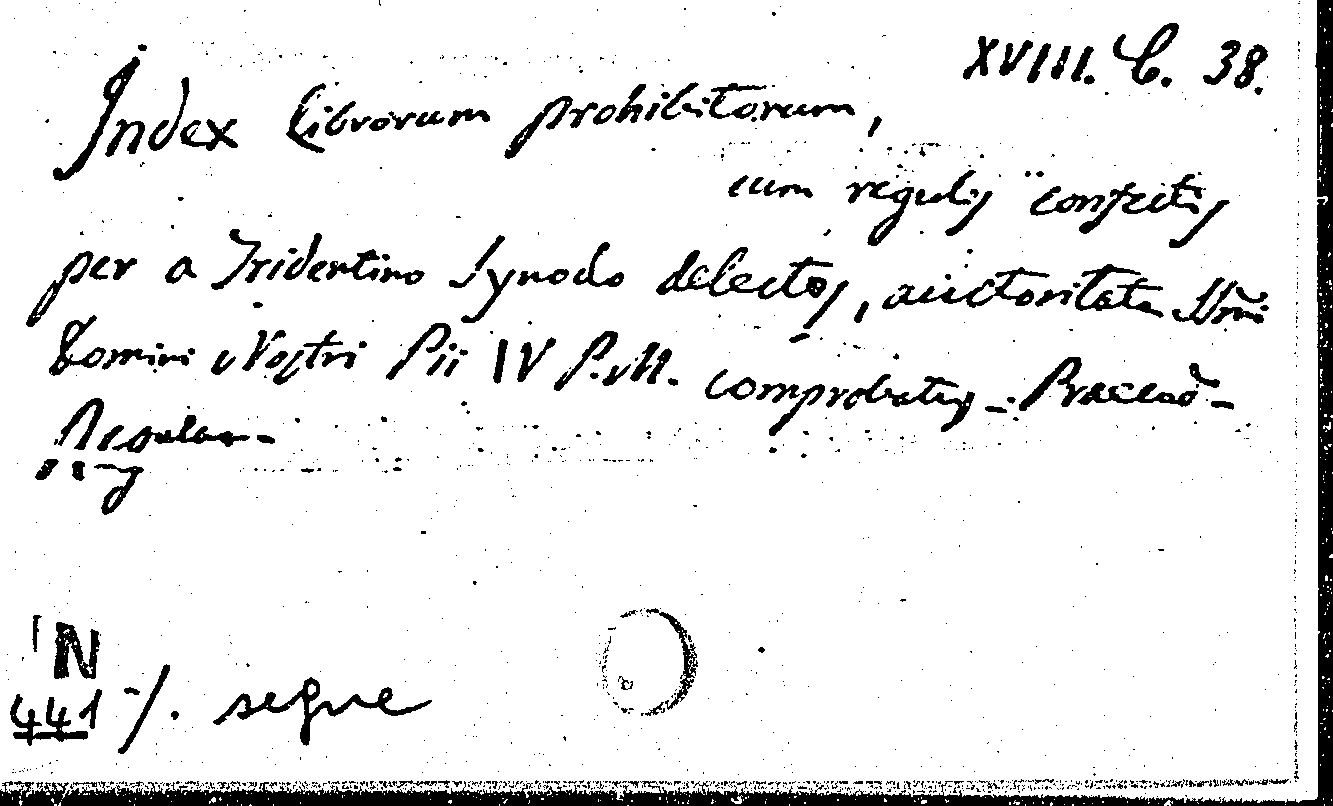 XVIII. C. 38.
Index Librorum prohibitorum,
cum regulis confectis
per a Tridentino Synodo delectos, auctoritate Ssm̃i
Domini Nostri Pii IV P.M. comprobatus -
Regulae -
N
441 ·/. segue